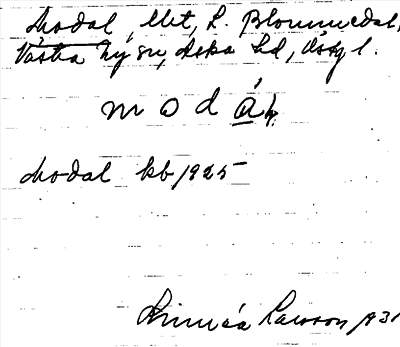 Modal, lht, L. Blommedal,
Västra Ny sn, Aska hd, Ög l.
modál
Modal kb 1925
Linnéa Larsson 1931